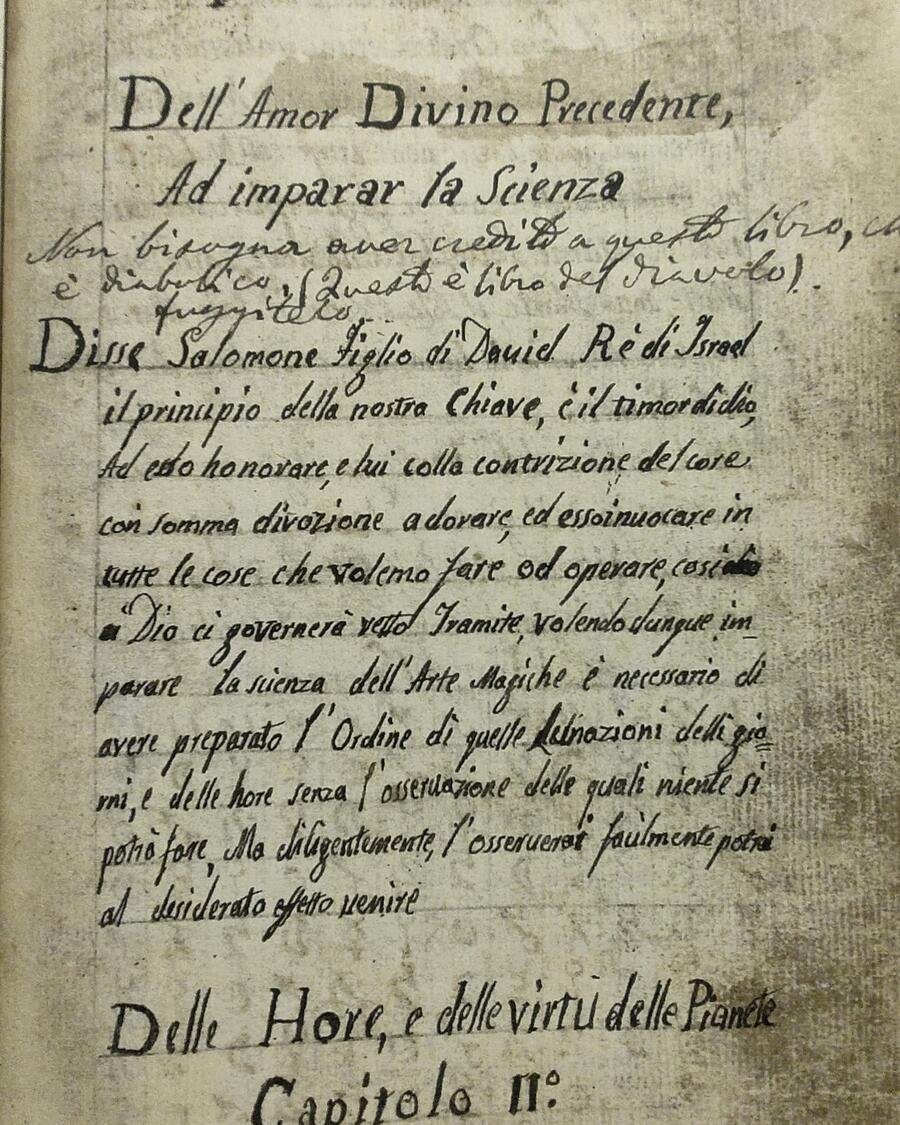 Dell' Amor Divino Precedente,
Ad imparar la Scienza
Non bisogna aver credito a questo libro,
è diabolico, (Questo è libro del diavolo).
fuggitelo.
Disse Salomone Figlio di Dauid Rè di Israel
il principio della nostra Chiave, è il timor di dio,
Ad esso honorare, e lui colla contrizione del core
con somma divozione adorare, ed esso inuocare in
tutte le cose che volemo fare od operare, cosi
Dio ci governerà retto Tramite, volendo dunque im
parare la scienza dell' Arte Magiche è necessario di
avere preparato l' Ordine di quelle delli gio=
rni, e delle hore senza l' osseruazione delle quali niente si
potrà fare, Ma diligentemente, l' osseruerai facilmente potrai
al desiderato effetto venire
Delle Hore, e delle virtù delle Pianete
Capitolo II.º